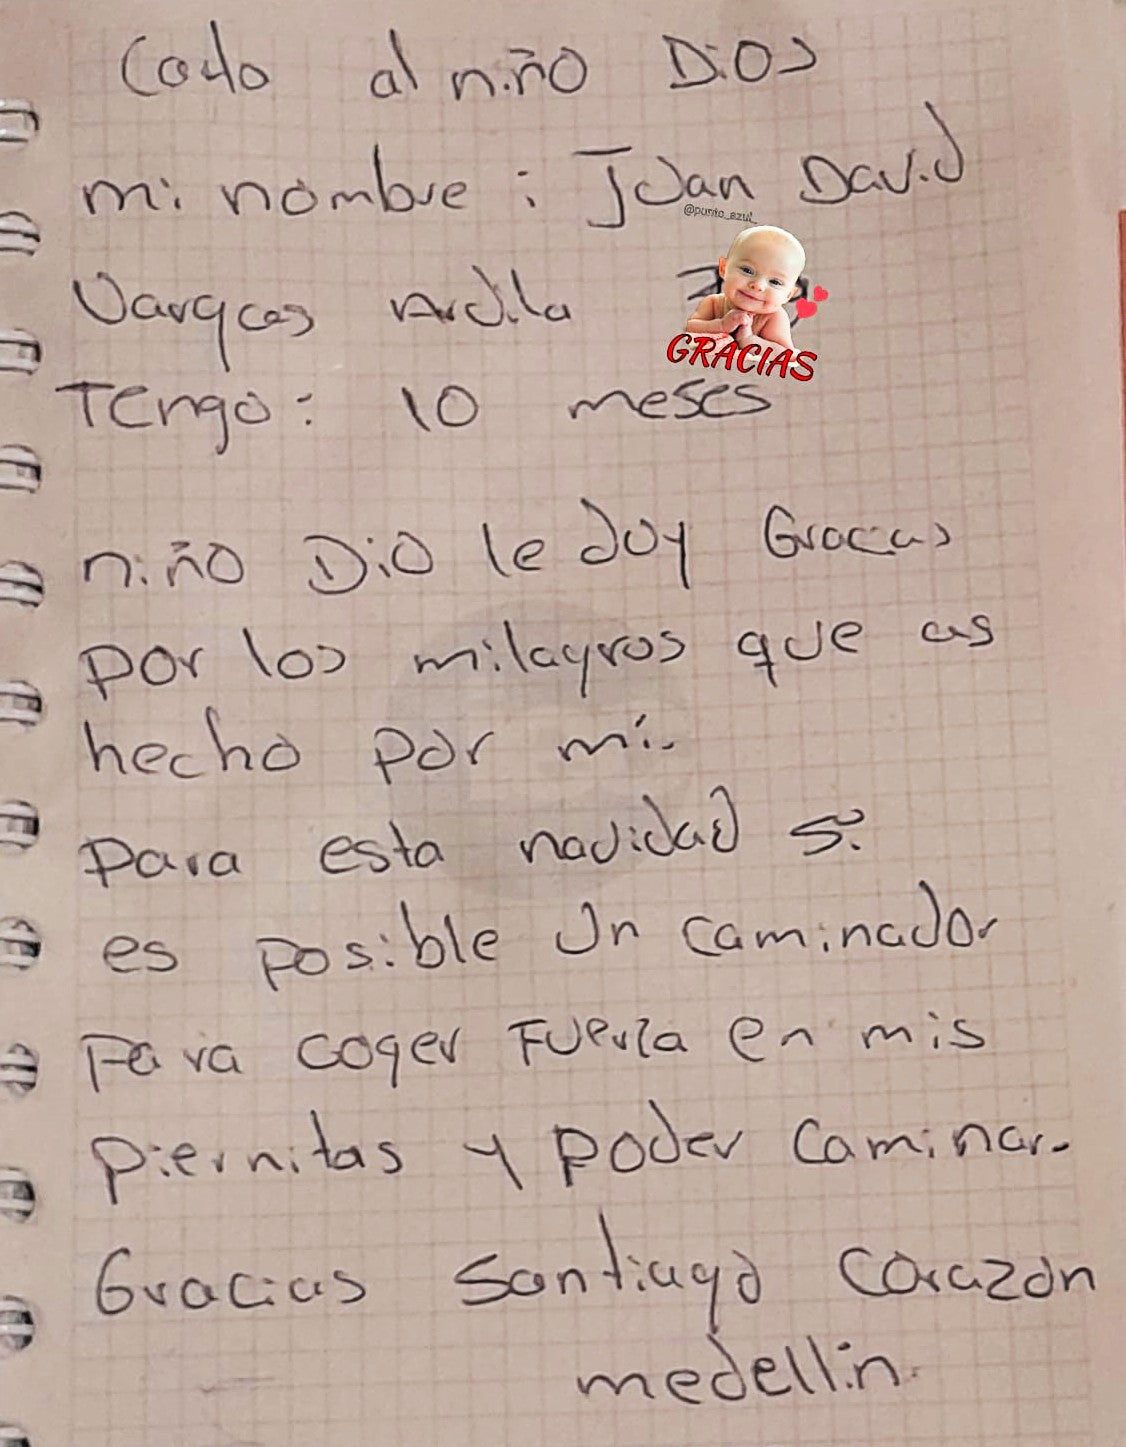 Carta al niño Dios
mi nombre : Juan David
@punto_azul_
Vargas Ardila
GRACIAS
Tengo: 10 meses
niño Dio le doy Gracias
por los milagros que as
hecho por mí.
para esta navidad si
es posible un caminador
para coger Fuerza en mis
piernitas y poder caminar.
Gracias Santiago Corazón
medellin.